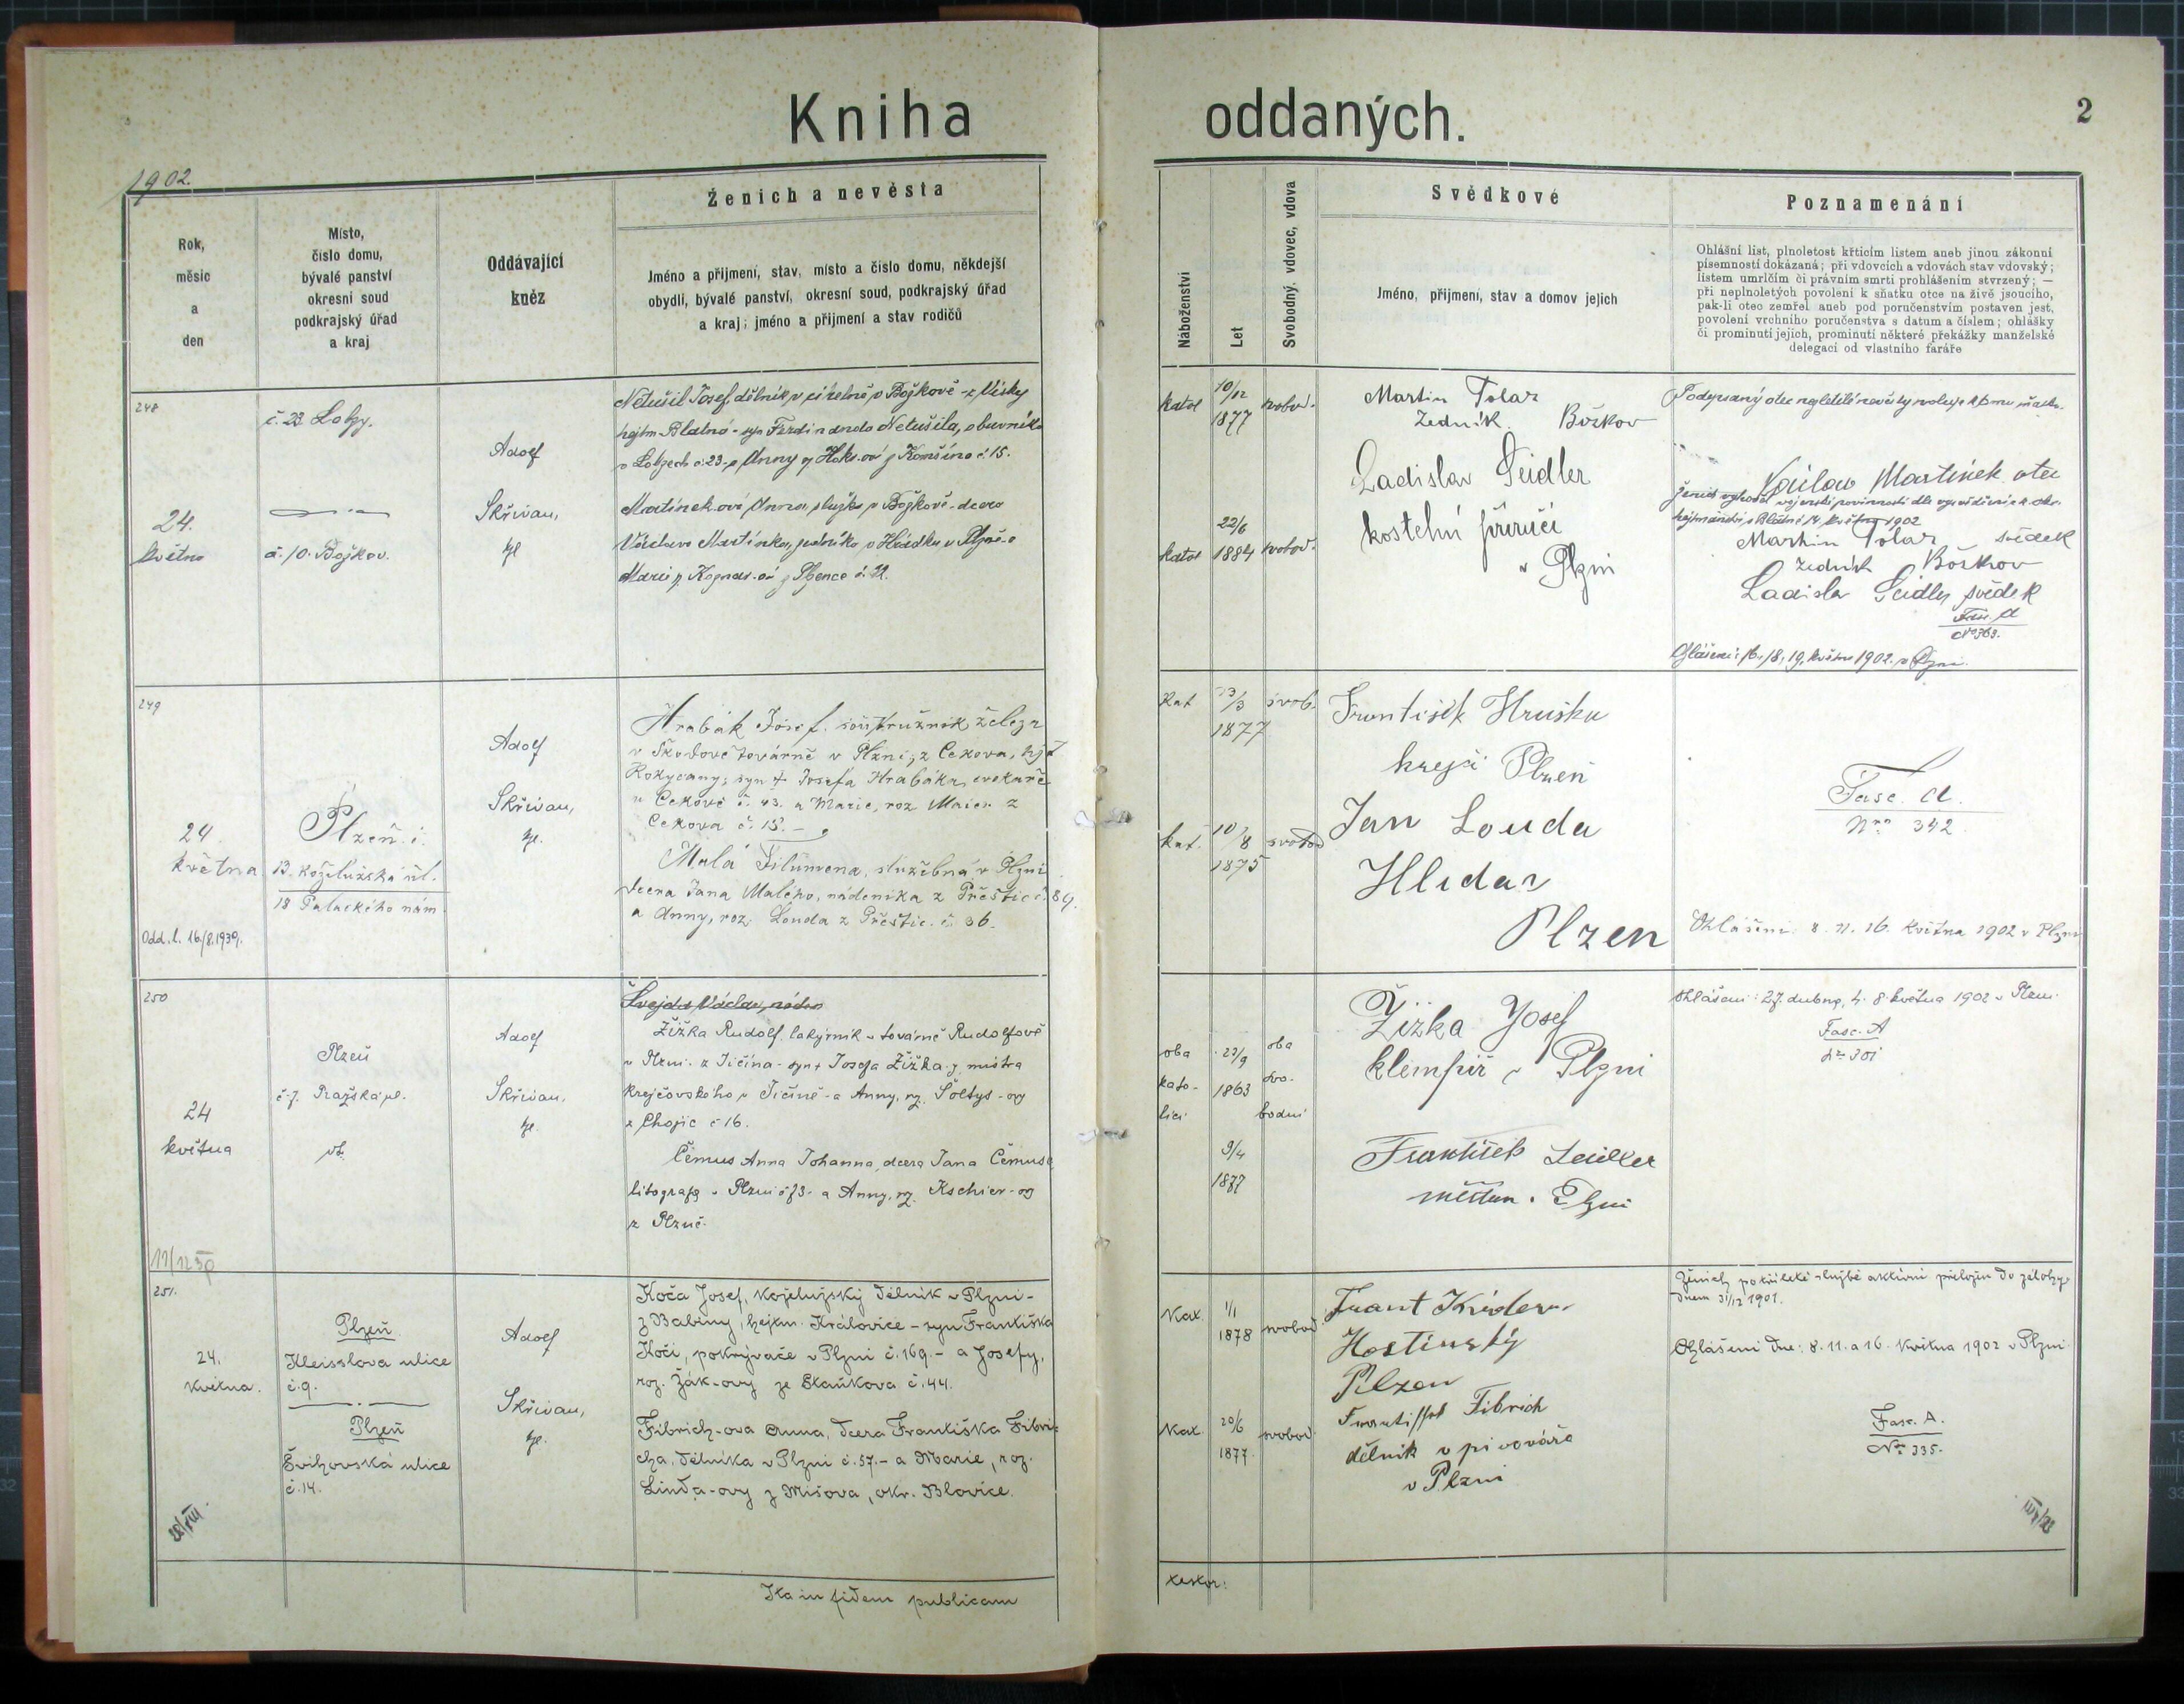 Kniha oddaných.
2
1902.
Rok,
měsíc
a
den
Místo,
číslo domu,
bývalé panství
okresní soud
podkrajský úřad
a kraj
Oddávající
kněz
Ženich a nevěsta
Jméno a přijmení, stav, místo a číslo domu, někdejší
obydlí, bývalé panství, okresní soud, podkrajský úřad
a kraj; jméno a přijmení a stav rodičů
Náboženství
Let
Svobodný, vdovec, vdova
Svědkové
Jméno, přijmení, stav a domov jejich
Poznamenání
Ohlášní list, plnoletost křticím listem aneb jinou zákonní
písemností dokázaná; při vdovcích a vdovách stav vdovský;
listem umrlčím či právním smrti prohlášením stvrzený; —
při neplnoletých povolení k sňatku otce na živě jsoucího,
pak-li otec zemřel aneb pod poručenstvím postaven jest,
povolení vrchního poručenstva s datum a číslem; ohlášky
či prominutí jejich, prominutí některé překážky manželské
delegací od vlastního faráře
248
24.
května
č. 23 Lobzy.
č. 10. Božkov.
Adolf
Skřivan,
kpl
Netušil Josef, dělník v cihelně v Božkově - z Vísky
hejtm. Blatná - syn Ferdinanda Netušila, obuvníka
v Lobzech č. 23 - a Anny
č. 15.
Martínek-ová Anna, služka v Božkově - dcera
Václava Martínka, zedníka v Hrádku u Plzně - a
Marie
č. 22.
katol
10/12
1877
svobod.
katol
22/6
1884
svobod.
Martin Tolar
Zedník Božkov
Ladislav Seidler
kostelní příručí
v Plzni
Podepsaný otec nezletilé nevěsty svoluje k
Václav Martinek otec
14 května 1902
Martin Tolar svědek
zedník Božkov
Ladislav Seidler svědek
Fasc. A
Nro 363.
Ohlášeni: 16., 18., 19. května 1902. v Plzni.
249
24.
května
Odd. l. 16./8.1939.
Plzeň i.
13. Koželužská ul.
18 Palackého nám.
Adolf
Skřivan,
kpl.
Hrabák Josef, soustružník železa
v Škodově továrně v Plzni; z Cekova, hejt
Rokycany; syn † Josefa Hrabáka, cvokaře
v Cekově č. 43. a Marie, roz. Maier z
Cekova č. 15. -
Malá Filomena, služebná v Plzni
dcera Jana Malého, nádeníka z Přeštic č. 89.
a Anny, roz. Louda z Přeštic. č. 36.
Kat
23/3
1877
svob.
kat.
10/8
1875
svobod
František Hruška
krejčí Plzeň
Jan Louda
Hlídač
Plzen
Fasc. A.
Nro 342
Ohlášeni: 8. 11. 16. května 1902 v Plzni
250
24
května
11/12 39
Plzeň
č. 7. Pražská ul.
Adolf
Skřivan,
kpl.
Švejda Václav, náden
Žižka Rudolf, lakýrník v továrně Rudolfově
v Plzni - z Jičína - syn † Josefa Žižka, mistra
krejčovského v Jičíně - a Anny, roz. Šoltys - ovy
z Chojic č 16.
Čemus Anna Johanna, dcera Jana Čemusa
litografa v Plzni č 73 - a Anny, roz. Kschier - ovy
z Plzně.
oba
kato-
líci
23/9
1863
oba
svo-
bodní
9/4
1877
Žižka Josef
klempíř v Plzni
František Seidler
měšťan v Plzni
Ohlášeni: 27. dubna, 4. 8. května 1902 v Plzni
Fasc. A
Nro 301
251.
24.
Května.
28/VIII.
Plzeň
Kleisslova ulice
č. 9.
Plzeň
Švihovská ulice
č. 14.
Adolf
Skřivan,
kpl.
Koča Josef, koželužský dělník v Plzni -
z Babiny, hejtm. Královice - syn Františka
Koči, pokrývače v Plzni č. 169. - a Josefy,
roz. Žák-ovy ze Staňkova č. 44.
Fibrich-ova Anna, dcera Františka Fibri-
cha, dělníka v Plzni č. 57. - a Marie, roz.
Linda-ovy z Mišova, okr. Blovice.
Kat.
1/1
1878
svobod
Kat.
20/6
1877.
svobod
Frant
Hostinský
Pilzen
Fibrich
dělník v pivováře
v Plzni
Ženich po tříleté službě aktivní přeložen do zálohy
dnem 31/12 1901.
Ohlášeni dne: 8. 11. a 16. května 1902 v Plzni
Fasc. A.
Nro 335.
Ita in fidem publicam